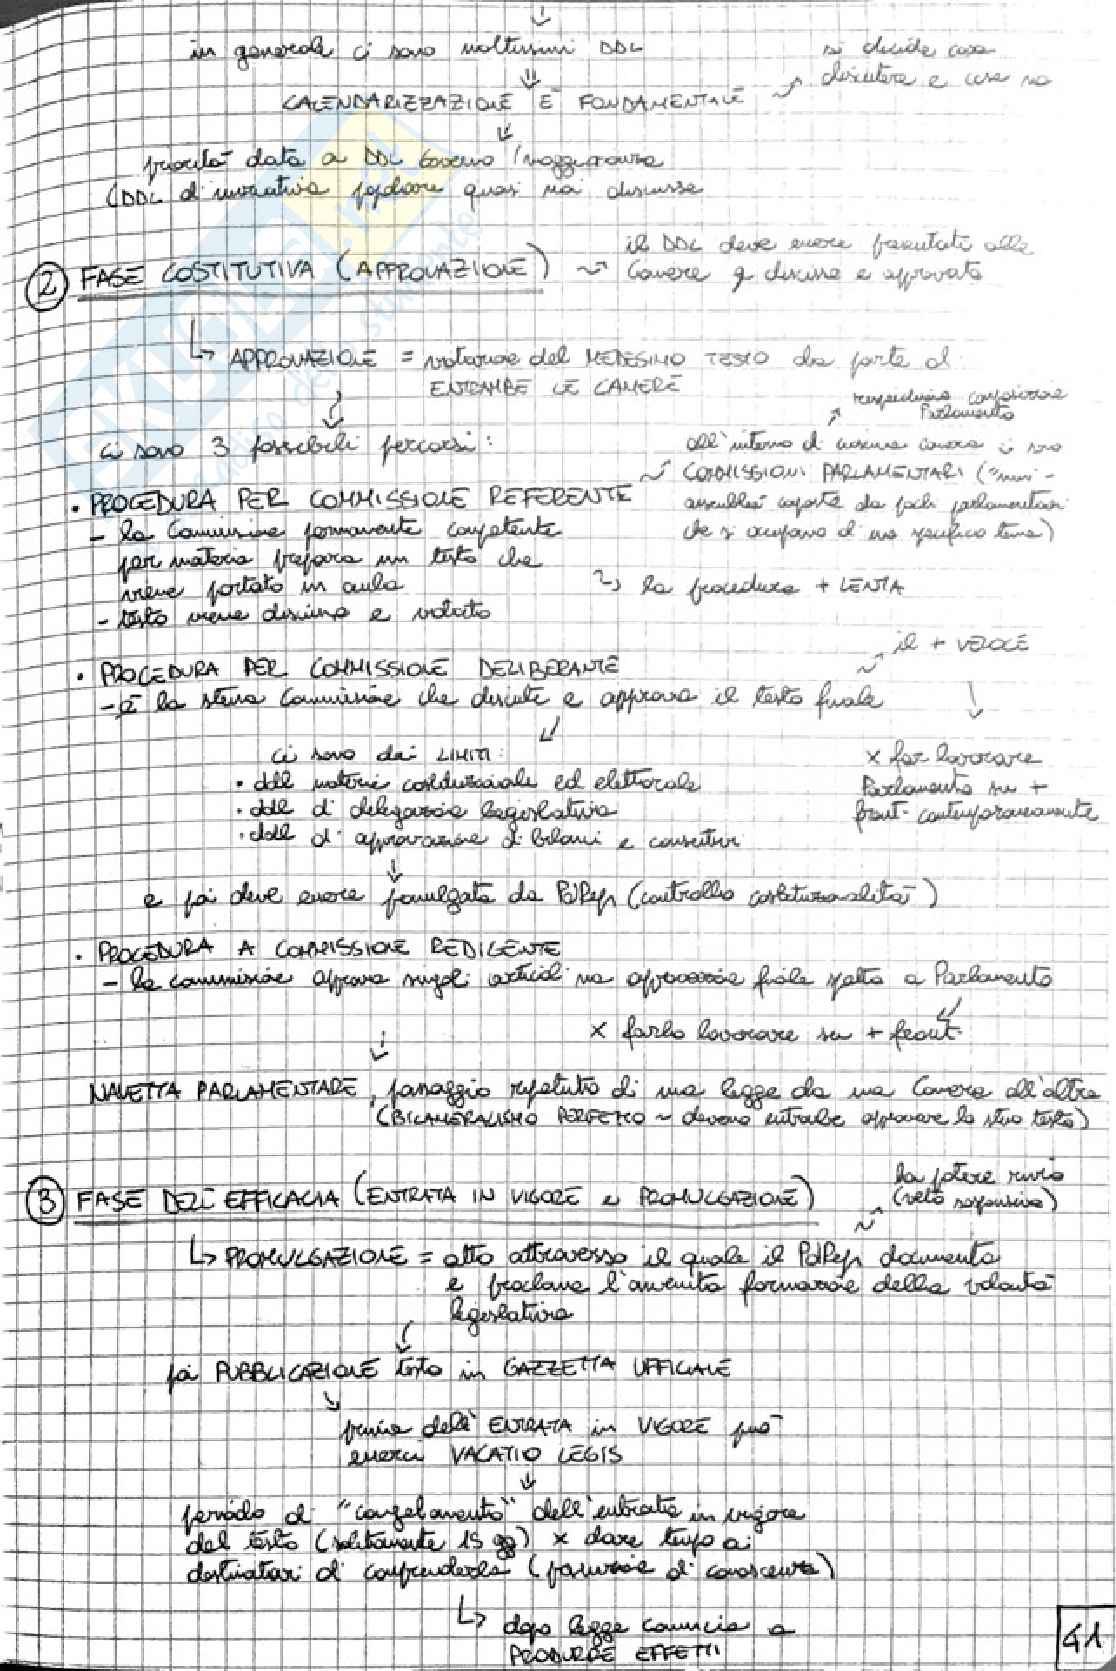 in generale ci sono moltissimi DDL
si decide cosa
discutere e cosa no
CALENDARIZZAZIONE È FONDAMENTALE
priorità data a DDL Governo / maggioranza
(DDL di iniziativa popolare quasi mai discusse
il DDL deve essere presentati alle
② FASE COSTITUTIVA (APPROVAZIONE)
Camere discusso e approvato
APPROVAZIONE = votazione del MEDESIMO TESTO da parte di
ENTRAMBE LE CAMERE
rispecchiano composizione
Parlamento
ci sono 3 possibili percorsi:
all'interno di ciascuna camera ci sono
COMMISSIONI PARLAMENTARI ("mini-
assemblee" composte da pochi parlamentari
che si occupano di uno specifico tema)
• PROCEDURA PER COMMISSIONE REFERENTE
- la Commissione permanente competente
per materia prepara un testo che
viene portato in aula
la procedura + LENTA
- testo viene discusso e votato
il + VELOCE
• PROCEDURA PER COMMISSIONE DELIBERANTE
- è la stessa Commissione che discute e approva il testo finale
ci sono dei LIMITI:
x far lavorare
• ddl materia costituzionale ed elettorale
Parlamento su +
• ddl di delegazione legislativa
front. contemporaneamente
• ddl di approvazione di bilanci e consuntivi
e poi deve essere promulgata da PdRep (controllo costituzionalità)
• PROCEDURA A COMMISSIONE REDIGENTE
- la commissione approva singoli articoli ma approvazione finale spetta a Parlamento
x farlo lavorare su + front.
NAVETTA PARLAMENTARE, passaggio ripetuto di una legge da una Camera all'altra
(BICAMERALISMO PERFETTO ~ devono entrambe approvare lo stesso testo)
ha potere rinvio
(veto sospensivo)
③ FASE DELL'EFFICACIA (ENTRATA IN VIGORE e PROMULGAZIONE)
PROMULGAZIONE = atto attraverso il quale il PdRep documenta
e proclama l'avvenuta formazione della volontà
legislativa
poi PUBBLICAZIONE testo in GAZZETTA UFFICIALE
prima dell'ENTRATA in VIGORE può
esserci VACATIO LEGIS
periodo di "congelamento" dell'entrata in vigore
del testo (solitamente 15 gg) x dare tempo ai
destinatari di comprenderla (presunzione di conoscenza)
dopo legge comincia a
PRODURRE EFFETTI
41